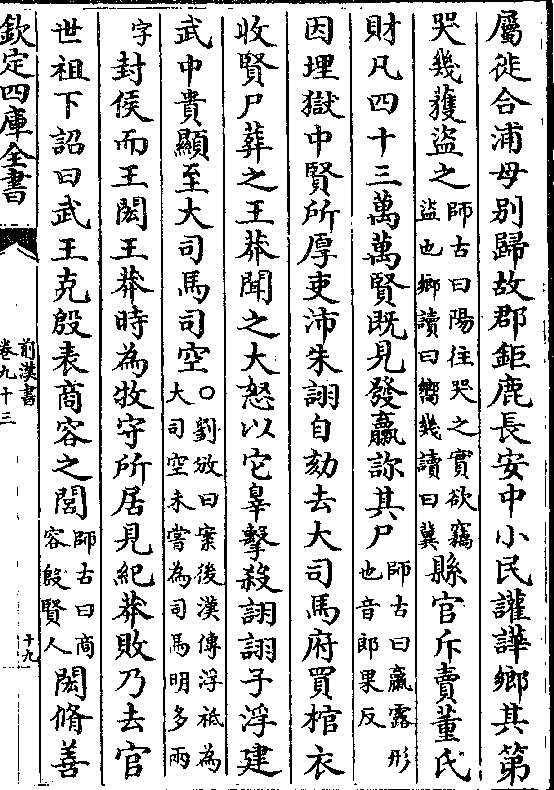 屬徙合浦母別歸故郡鉅鹿長安中小民讙譁鄉其第
哭幾獲盜之師古曰陽往哭之實欲竊盜也鄉讀曰嚮幾讀曰冀縣官斥賣董氏
財凡四十三萬萬賢既見發臝診其尸師古曰臝露形也音郎果反
因埋獄中賢所厚吏沛朱詡自劾去大司馬府買棺衣
收賢尸葬之王莽聞之大怒以它辠擊殺詡詡子浮建
武中貴顯至大司馬司空○劉攽曰案後漢傳浮祗為大司空未嘗為司馬明多兩
字封侯而王閎王莽時為牧守所居見紀莽敗乃去官
世祖下詔曰武王克殷表商容之閭師古曰商容殷賢人閎脩善
欽定四庫全書
前漢書
卷九十三
十九